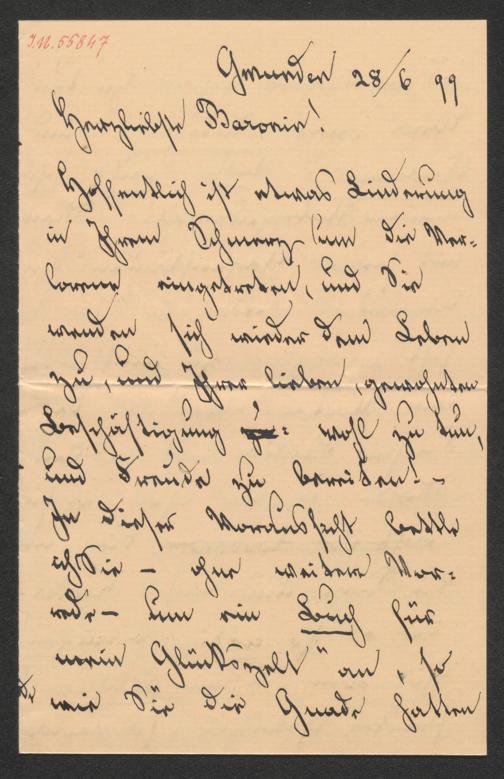 I.N. 55847
Gmunden 28/6 99
Herzliebste Baronin!
Hoffentlich ist etwas Linderung
in Ihrem Schmerz um die Ver-
lorene eingetreten, und Sie
wenden sich wieder dem Leben
zu, und Ihrer lieben, gewohnten
Beschäftigung : wohl zu tun,
und Freude zu bereiten! –
In dieser Voraussicht bettle
ich Sie – ohne weitere Vor-
rede – um ein Buch für
mein Glückszelt" an, so
wie Sie die Gnade hatten